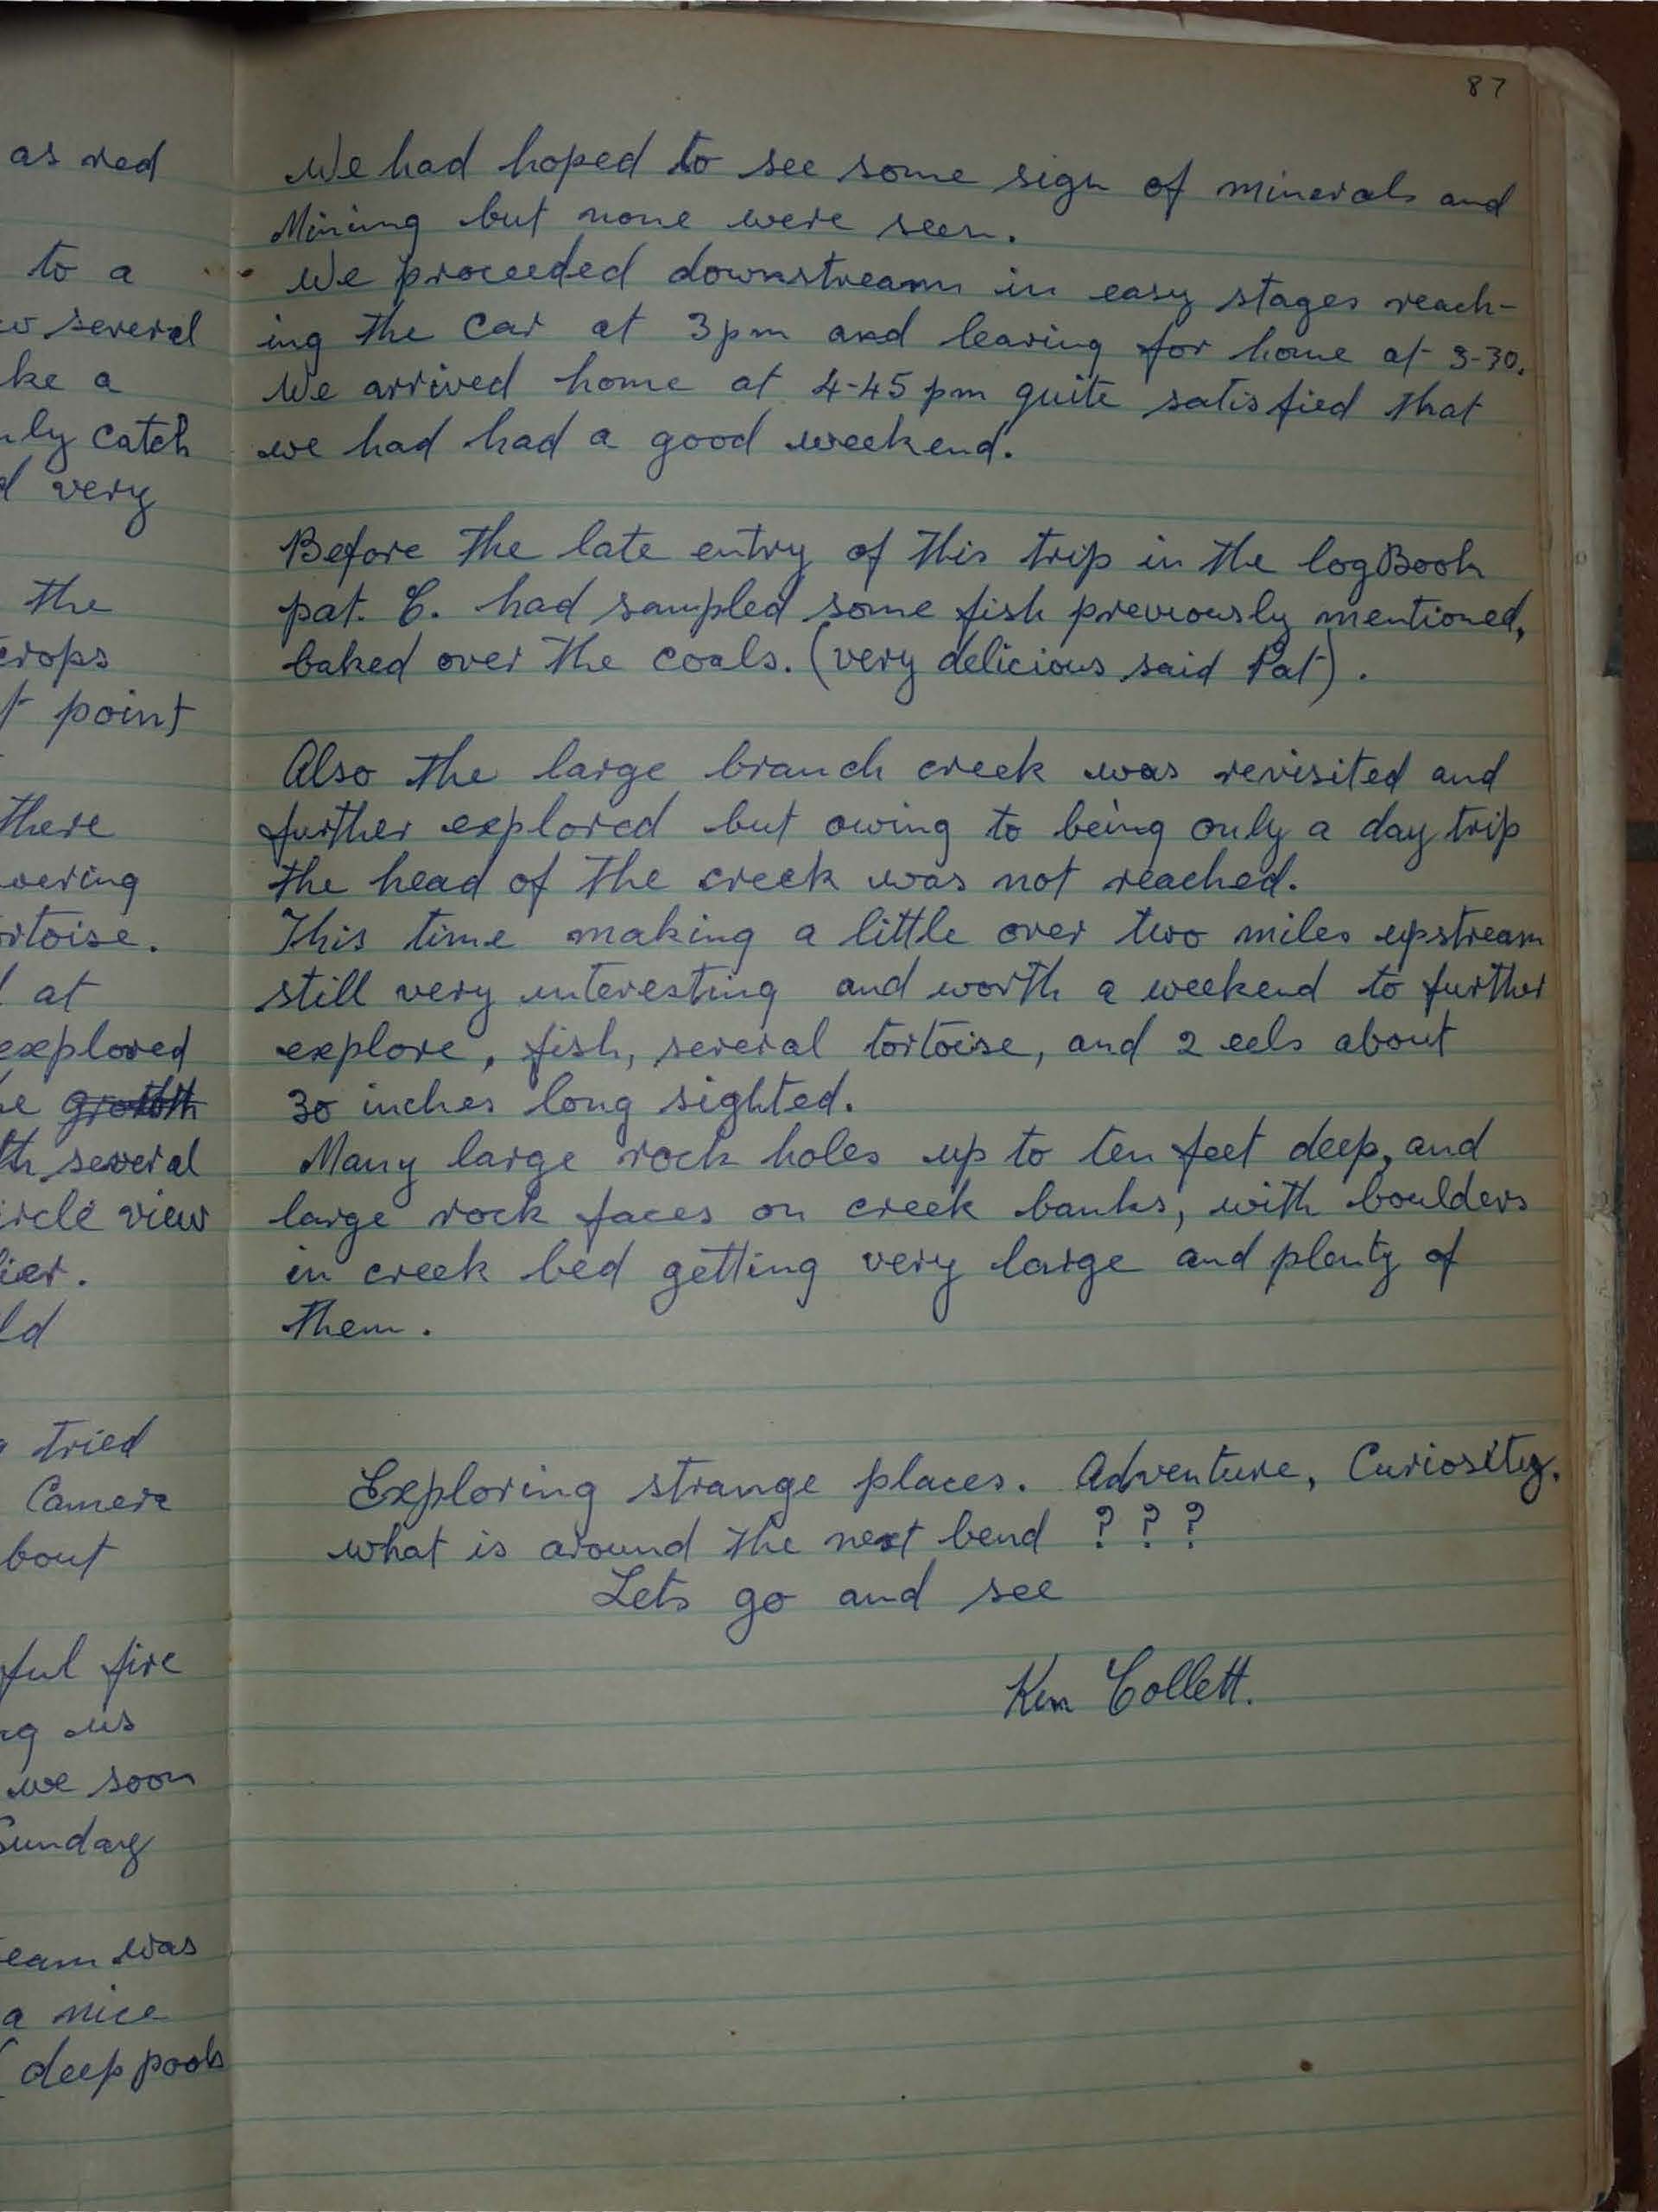 87
as red
to a
several
ke a
ly catch
very
the
crops
point
there
vering
rtoise.
at
explored
growth
th several
ircle view
lier.
ld
tried
Camera
bout
ful fire
ng us
we soon
Sunday
eam was
a nice
deep pools
We had hoped to see some sign of minerals and
Mining but none were seen.
We proceeded downstream in easy stages reach-
ing the Car at 3pm and leaving for home at 3-30.
We arrived home at 4-45 pm quite satisfied that
we had had a good weekend.
Before the late entry of this trip in the log Book
pat. C. had sampled some fish previously mentioned,
baked over the coals. (very delicious said Pat).
Also the large branch creek was revisited and
further explored but owing to being only a day trip
the head of the creek was not reached.
This time making a little over two miles upstream
still very interesting and worth a weekend to further
explore, fish, several tortoise, and 2 eels about
30 inches long sighted.
Many large rock holes up to ten feet deep, and
large rock faces on creek banks, with boulders
in creek bed getting very large and plenty of
them.
Exploring strange places. Adventure, Curiosity.
what is around the next bend ? ? ?
Lets go and see
Ken Collett.